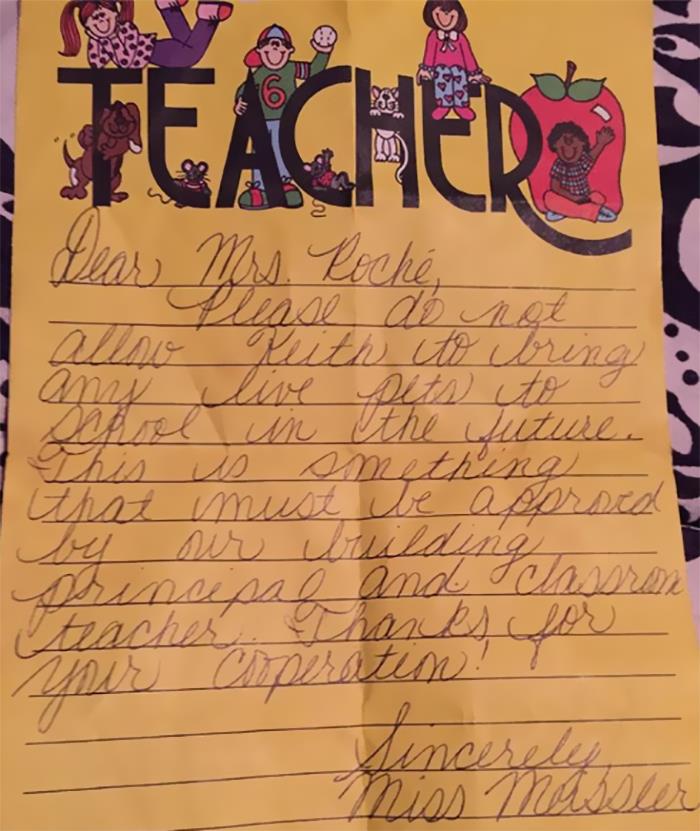 TEACHER
6
Dear Mrs. Roché,
Please do not
allow Keith to bring
any live pets to
school in the future.
This is something
that must be approved
by our building
principal and classroom
teacher. Thanks for
your cooperation!
Sincerely,
Miss Massler